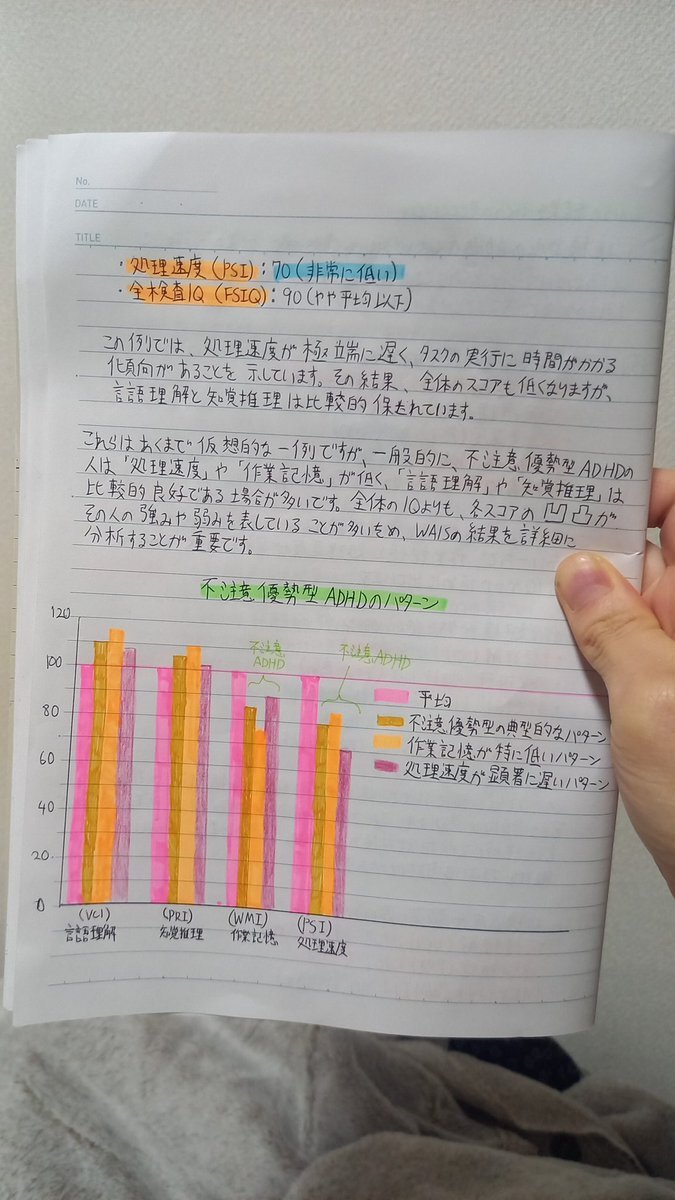 No.
DATE
TITLE
・処理速度(PSI):70(非常に低い)
・全検査IQ(FSIQ):90(やや平均以下)
この例では、処理速度が極端に遅く、タスクの実行に時間がかかる
傾向があることを示しています。その結果、全体のスコアも低くなりますが、
言語理解と知覚推理は比較的保たれています。
これらはあくまで仮想的な一例ですが、一般的に、不注意優勢型ADHDの
人は「処理速度」や「作業記憶」が低く、「言語理解」や「知覚推理」は
比較的良好である場合が多いです。全体のIQよりも、各スコアの凹凸が
その人の強みや弱みを表していることが多いため、WAISの結果を詳細に
分析することが重要です。
不注意優勢型ADHDのパターン
120
100
80
60
40
20
0
不注意
ADHD
不注意ADHD
平均
不注意優勢型の典型的なパターン
作業記憶が特に低いパターン
処理速度が顕著に遅いパターン
(VCI) (PRI) (WMI) (PSI)
言語理解 知覚推理 作業記憶 処理速度